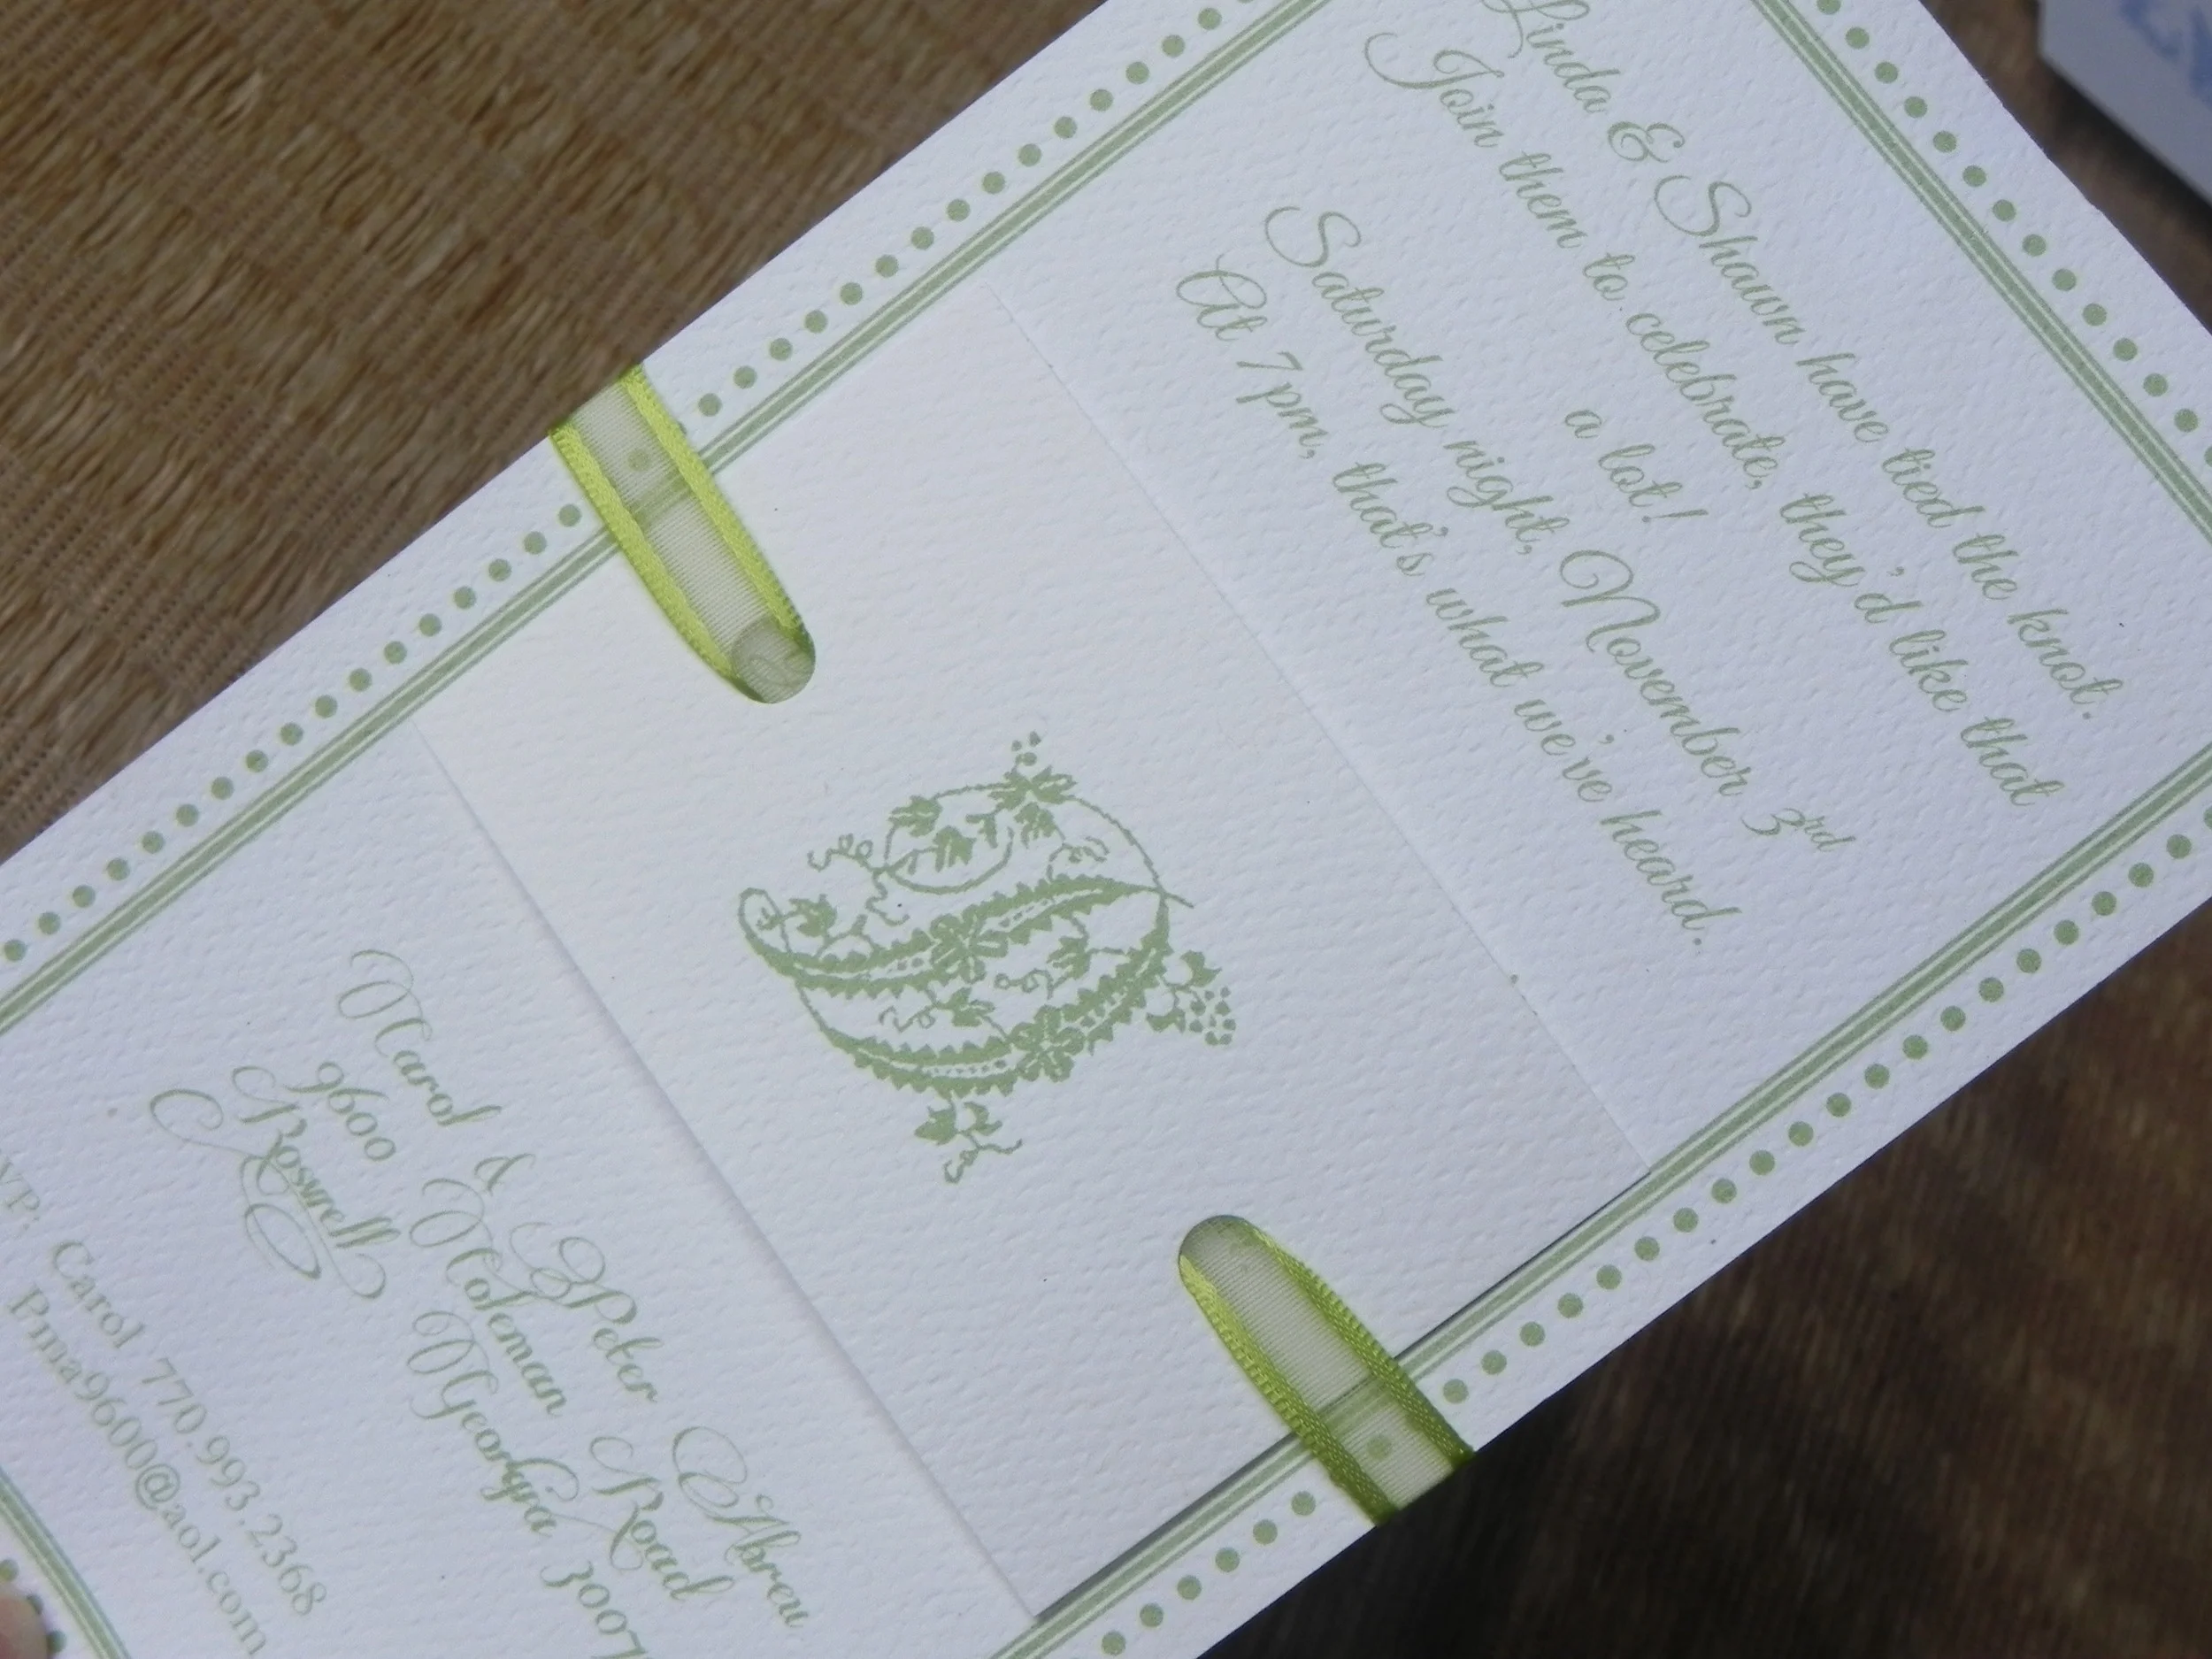 Linda & Shawn have tied the knot.
Join them to celebrate, they'd like that
a lot!
Saturday night, November 3rd
At 7pm, that's what we've heard.
Carol & Peter Abreu
9600 Coleman Road
Roswell Georgia
Carol 770.993.2368
Pma9600@aol.com